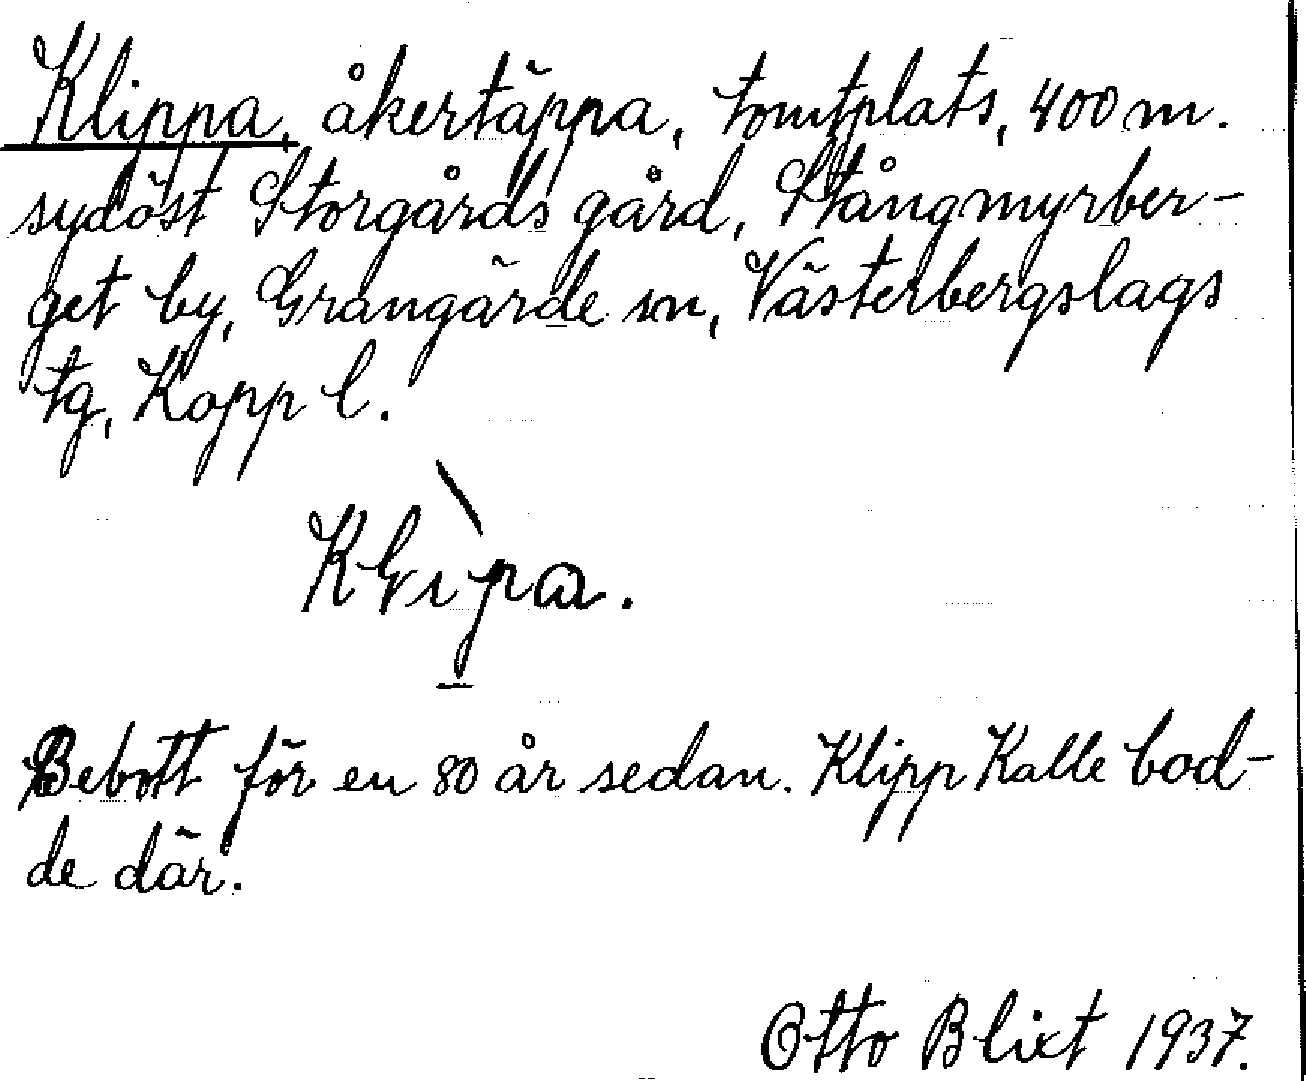 Klippa, åkertäppa, tomtplats, 400 m.
sydöst Storgårds gård, Stångmyrber-
get by, Grangärde sn, Västerbergslags
tg, Kopp l.
Klipa.
Bebott för en 80 år sedan. Klipp Kalle bod-
de där.
Otto Blixt 1937.